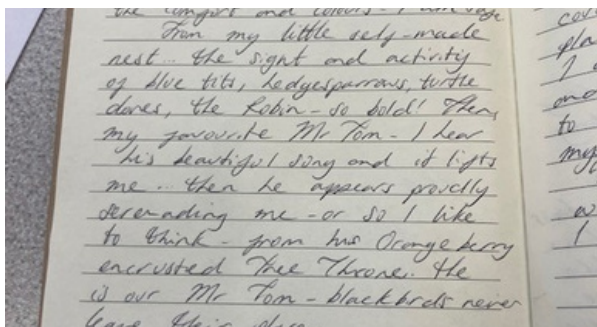 the comfort and colours - I can see
From my little self-made
nest... the sight and activity
of blue tits, hedgesparrows, turtle
doves, the Robin - so bold! Then,
my favourite Mr Tom - I hear
his beautiful song and it lifts
me... then he appears proudly
serenading me - or so I like
to think - from his Orange berry
encrusted Tree Throne. He
is our Mr Tom - blackbirds never
leave their place
cov
pla
I
and
to
my
w
I